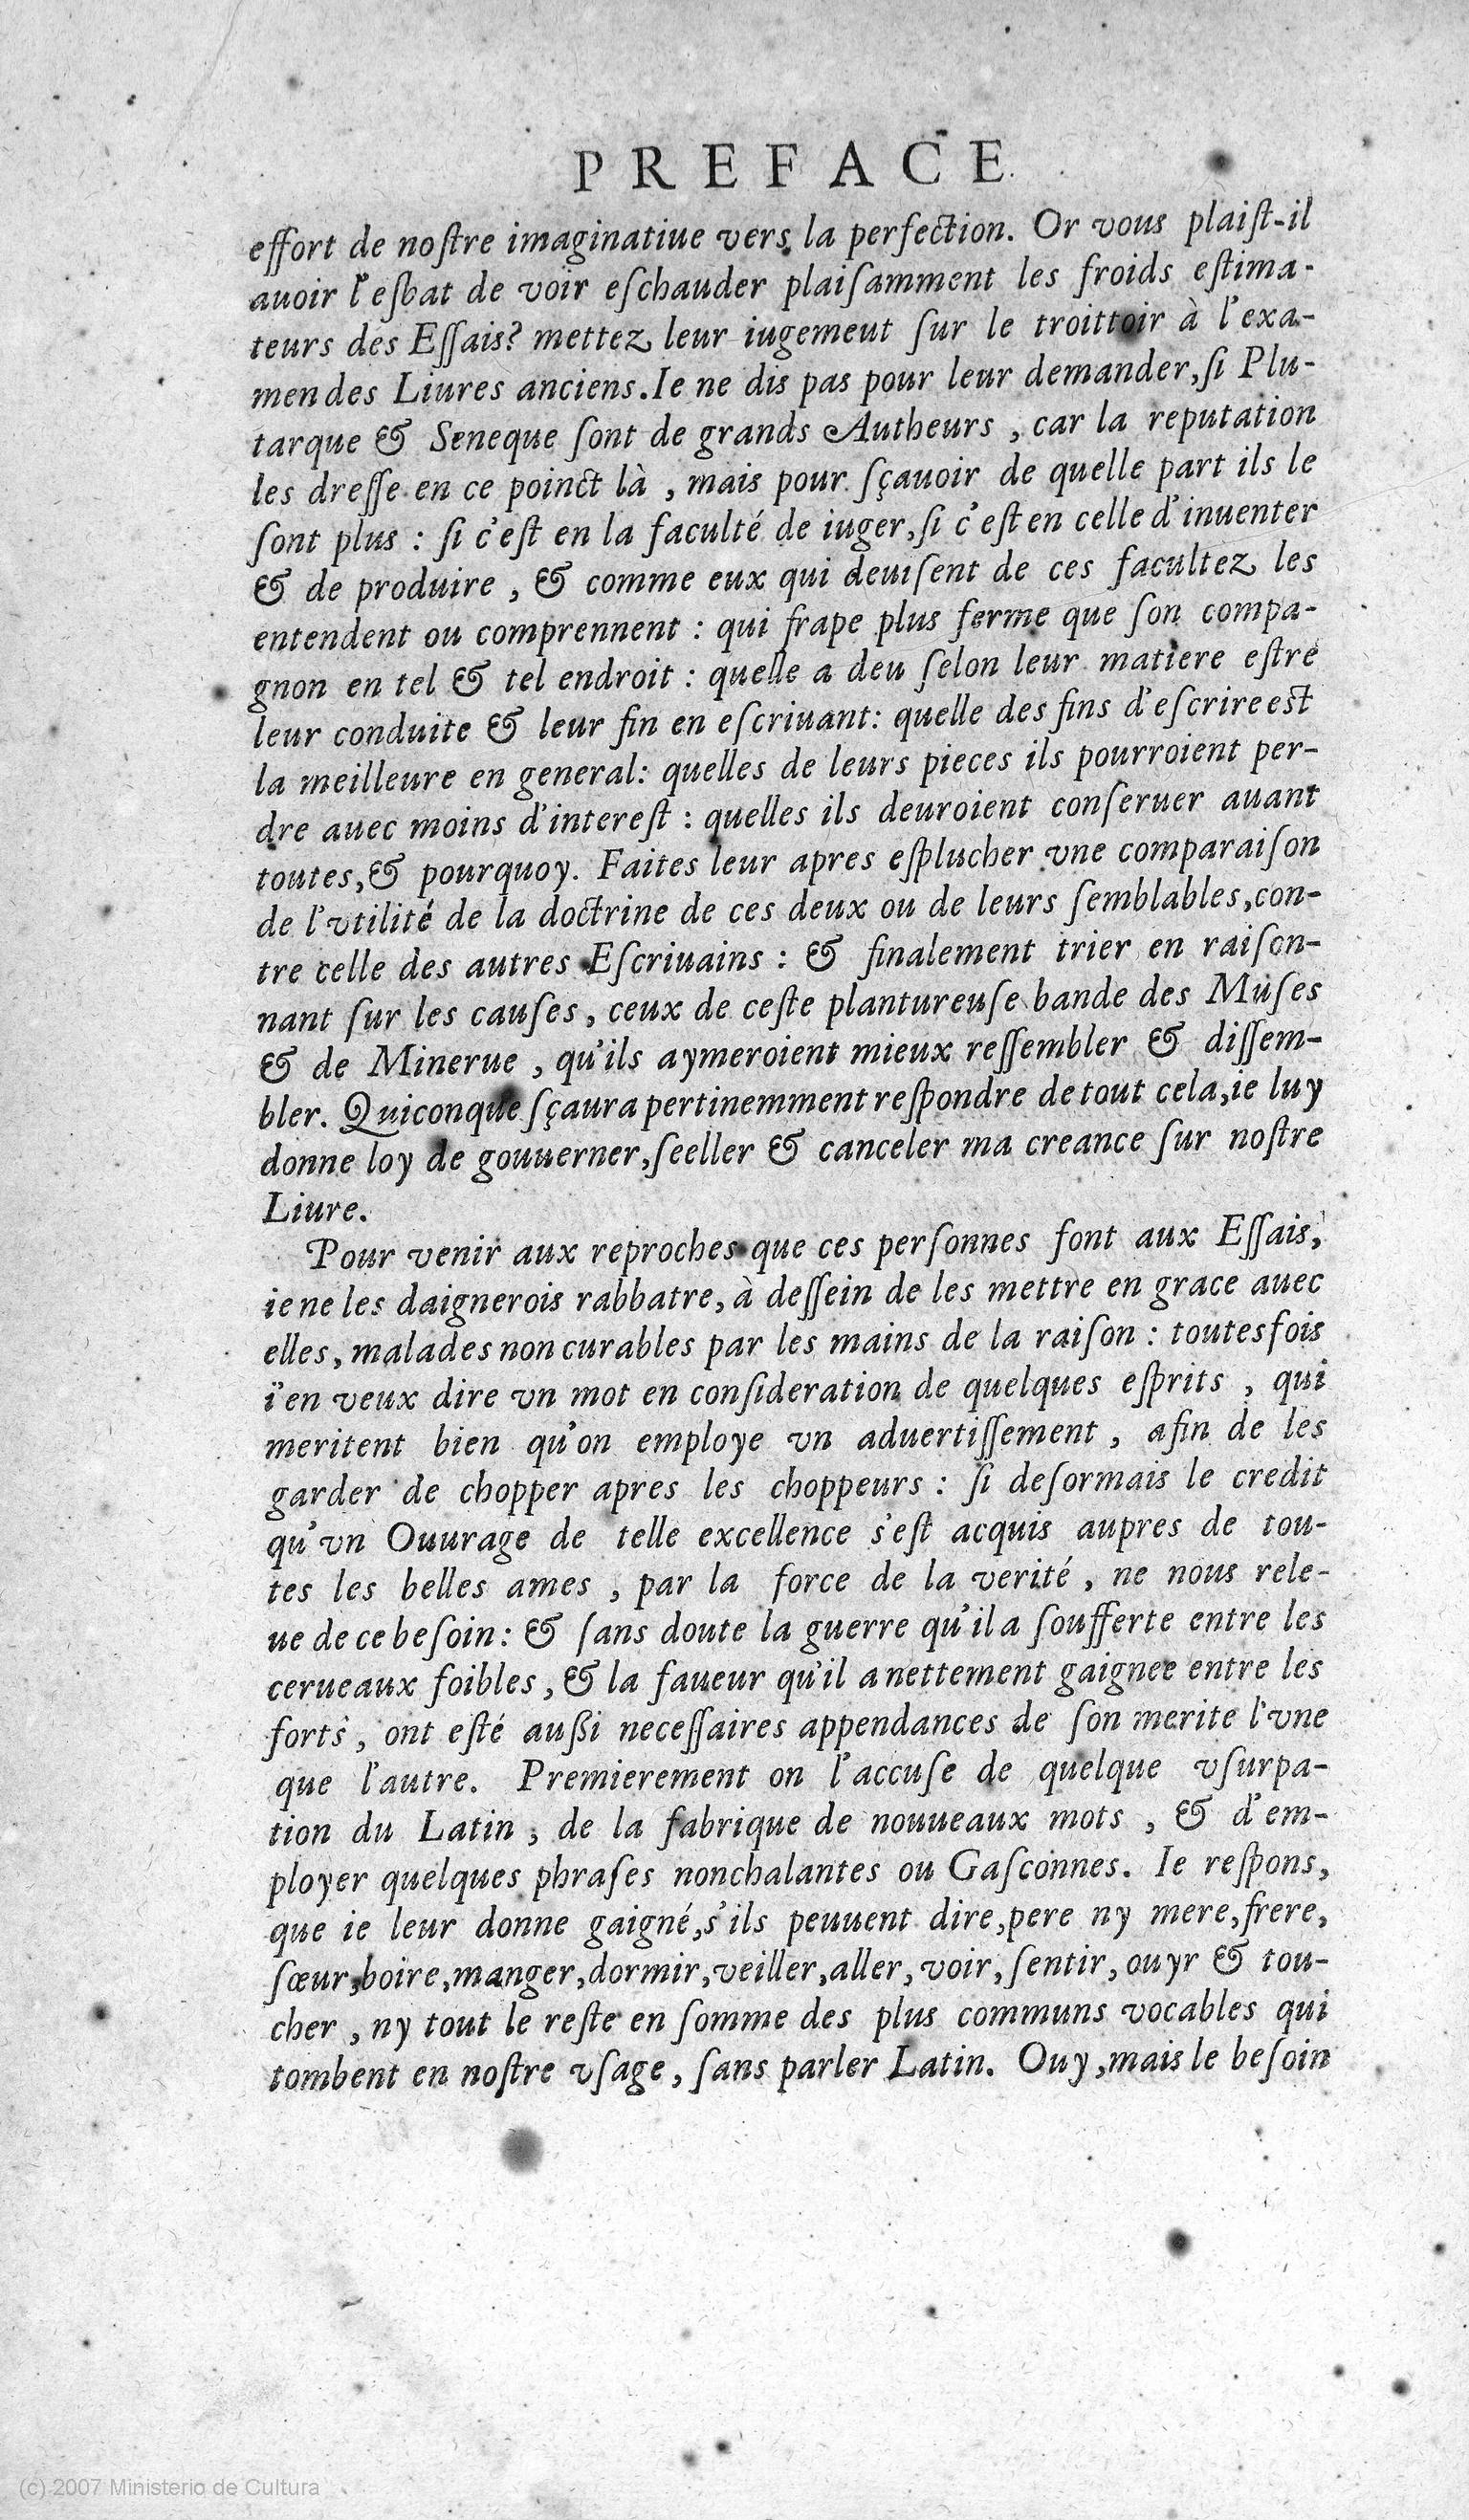 PREFACE
effort de noſtre imaginatiue vers la perfection. Or vous plaiſt-il
auoir l'eſbat de voir eſchauder plaiſamment les froids eſtima-
teurs des Eſſais? mettez leur iugemeut ſur le troittoir à l'exa-
men des Liures anciens. Ie ne dis pas pour leur demander, ſi Plu-
tarque & Seneque ſont de grands Autheurs, car la reputation
les dreſſe en ce poinct là, mais pour ſçauoir de quelle part ils le
ſont plus : ſi c'eſt en la faculté de iuger, ſi c'eſt en celle d'inuenter
& de produire, & comme eux qui deuiſent de ces facultez les
entendent ou comprennent : qui frape plus ferme que ſon compa-
gnon en tel & tel endroit : quelle a deu ſelon leur matiere eſtre
leur conduite & leur fin en eſcriuant: quelle des fins d'eſcrire est
la meilleure en general: quelles de leurs pieces ils pourroient per-
dre auec moins d'intereſt : quelles ils deuroient conſeruer auant
toutes, & pourquoy. Faites leur apres eſplucher vne comparaiſon
de l'vtilité de la doctrine de ces deux ou de leurs ſemblables, con-
tre celle des autres Eſcriuains : & finalement trier en raiſon-
nant ſur les cauſes, ceux de ceſte plantureuſe bande des Muſes
& de Minerue, qu'ils aymeroient mieux reſſembler & diſſem-
bler. Quiconque ſçaura pertinemment reſpondre de tout cela, ie luy
donne loy de gouuerner, ſeeller & canceler ma creance ſur noſtre
Liure.
Pour venir aux reproches que ces perſonnes font aux Eſſais,
ie ne les daignerois rabbatre, à deſſein de les mettre en grace auec
elles, malades non curables par les mains de la raiſon : toutesfois
i'en veux dire vn mot en conſideration de quelques eſprits, qui
meritent bien qu'on employe vn aduertiſſement, afin de les
garder de chopper apres les choppeurs : ſi deſormais le credit
qu'vn Ouurage de telle excellence s'eſt acquis aupres de tou-
tes les belles ames, par la force de la verité, ne nous rele-
ue de ce beſoin: & ſans doute la guerre qu'il a ſoufferte entre les
cerueaux foibles, & la faueur qu'il a nettement gaignee entre les
forts, ont eſté außi neceſſaires appendances de ſon merite l'vne
que l'autre. Premierement on l'accuſe de quelque vſurpa-
tion du Latin, de la fabrique de nouueaux mots, & d'em-
ployer quelques phraſes nonchalantes ou Gaſconnes. Ie reſpons,
que ie leur donne gaigné, s'ils peuuent dire, pere ny mere, frere,
ſœur, boire, manger, dormir, veiller, aller, voir, ſentir, ouyr & tou-
cher, ny tout le reſte en ſomme des plus communs vocables qui
tombent en noſtre vſage, ſans parler Latin. Ouy, mais le beſoin
(c) 2007 Ministerio de Cultura